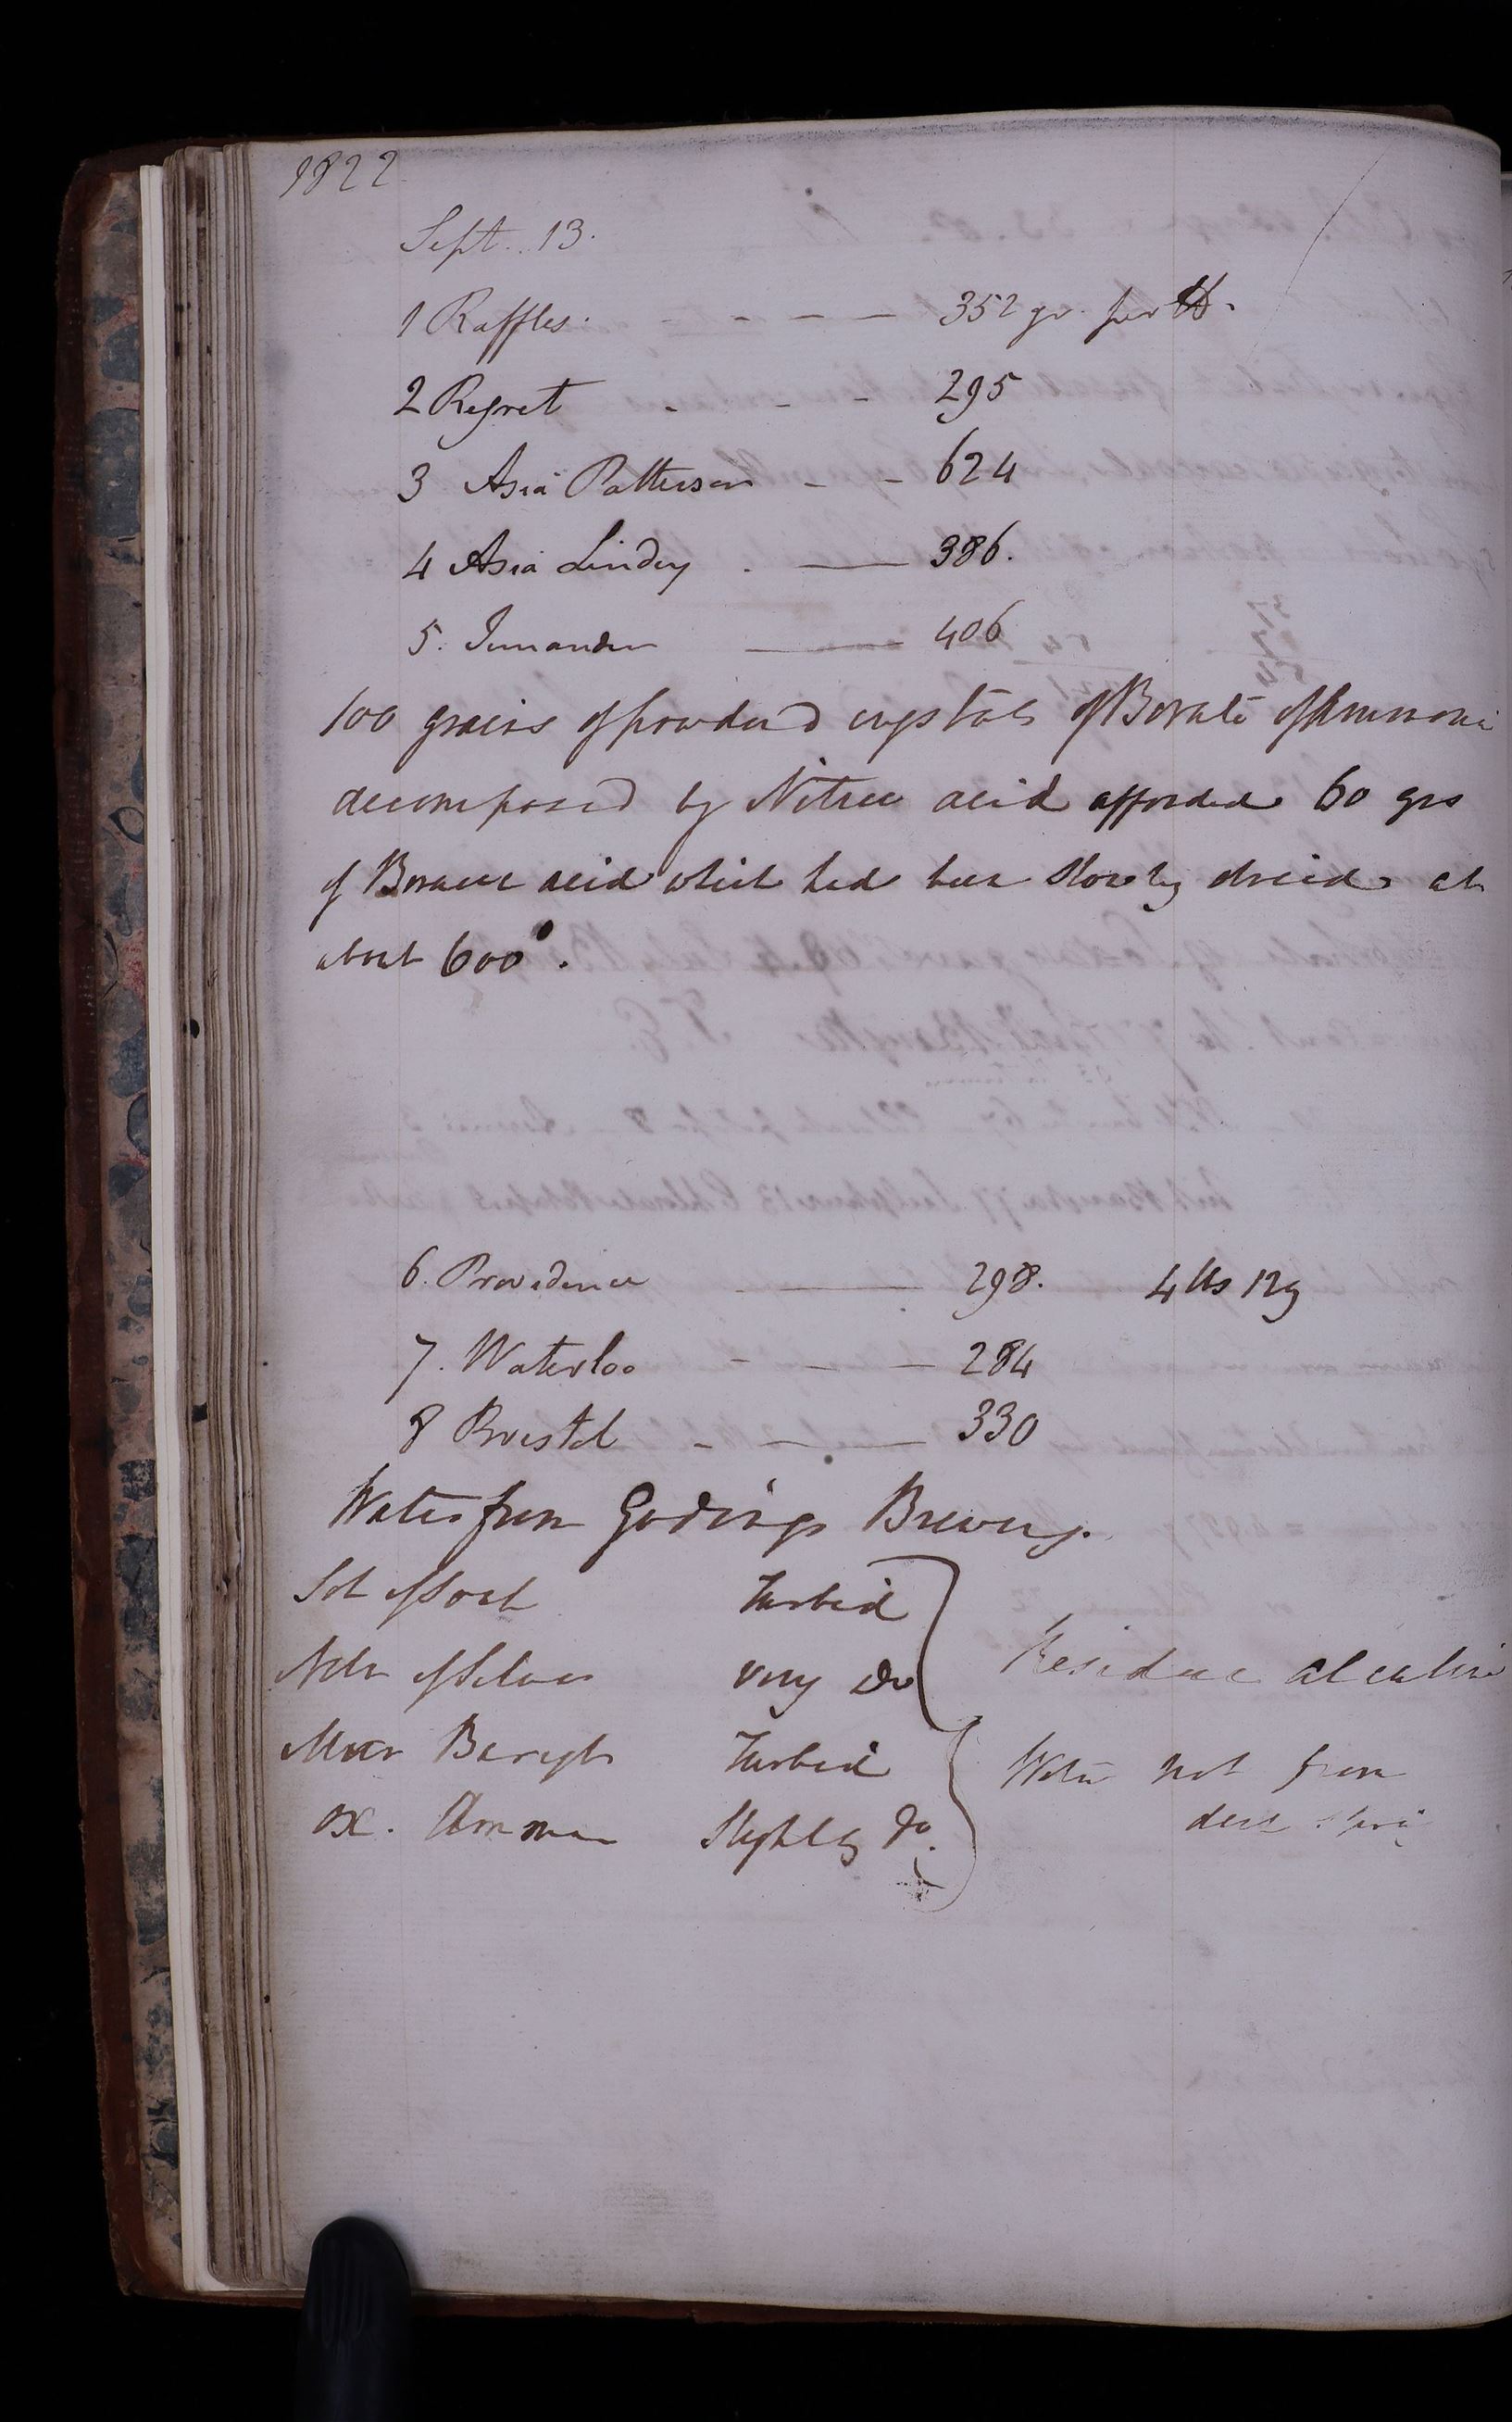 1822
Sept. 13.
1 Raffles. - - - - 352 gr. per lb.
2 Regret - - - 295
3 Asia Patterson - - 624
4 Asia Lindsy . — 386.
5. — 406
100 grains of powderd crystals of Borate of Ammonia
decomposed by Nitric acid afforded 60 grs
of Boracic acid which had been slowly dried at
about 600°.
6. Providence — 298. 4 lbs 12g
7. Waterloo - — - 284
8 Bristol - — 330
Water from Godings Brewery.
Sol of Soap Turbid
Nitr of Silver very do Residue alcaline
Mur Barytes Turbid Water not from
ox. Ammon Slightly do. deep